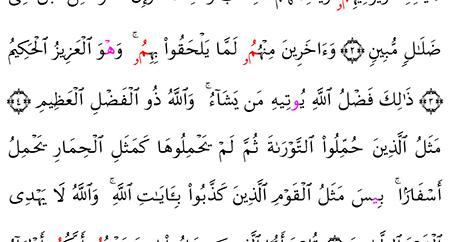 ضَلَٰلٖ مُّبِينٖ ۝٢ وَءَاخَرِينَ مِنْهُمُۥ لَمَّا يَلْحَقُوا۟ بِهِمُۥ ۚ وَهْوَ ٱلْعَزِيزُ ٱلْحَكِيمُ
۝٣ ذَٰلِكَ فَضْلُ ٱللَّهِ يُوتِيهِ مَن يَشَآءُ ۚ وَٱللَّهُ ذُو ٱلْفَضْلِ ٱلْعَظِيمِ ۝٤
مَثَلُ ٱلَّذِينَ حُمِّلُوا۟ ٱلتَّوْرَىٰةَ ثُمَّ لَمْ يَحْمِلُوهَا كَمَثَلِ ٱلْحِمَارِ يَحْمِلُ
أَسْفَارَۢا ۚ بِيسَ مَثَلُ ٱلْقَوْمِ ٱلَّذِينَ كَذَّبُوا۟ بِـَٔايَٰتِ ٱللَّهِ ۚ وَٱللَّهُ لَا يَهْدِى